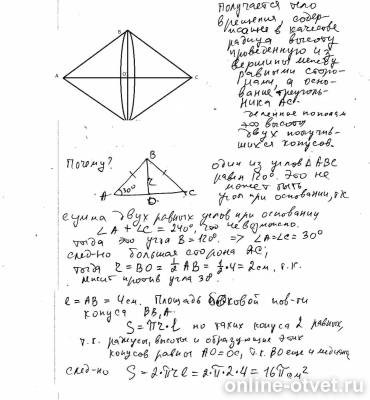 B
A
O
C
Получается тело
вращения, содер-
жащее в качестве
радиуса высоту
проведенную из
вершины между
равными сторо-
нами, а осно-
вание треуголь-
ника AC
деленное пополам
это высоты
двух получив-
шихся конусов.
Почему?
B
A
30°
r
O
C
один из углов △ABC
равен 120°. Это не
может быть
угол при основании, т.к.
сумма двух равных углов при основании
∠A + ∠C = 240°, что невозможно.
тогда это угол B = 120°. => ∠A=∠C=30°
след-но большая сторона AC;
тогда r = BO = 1/2 AB = 1/2·4 = 2см, т.к.
лежит против угла 30°.
l = AB = 4см. Площадь боковой пов-ти
конуса BB₁A.
S = πrl но таких конуса 2 равных,
т.к. радиусы, высоты и образующие этих
конусов равны AO=OC, т.к. BO еще и медиана
след-но S = 2·πrl = 2·π·2·4 = 16π см²
online-otvet.ru